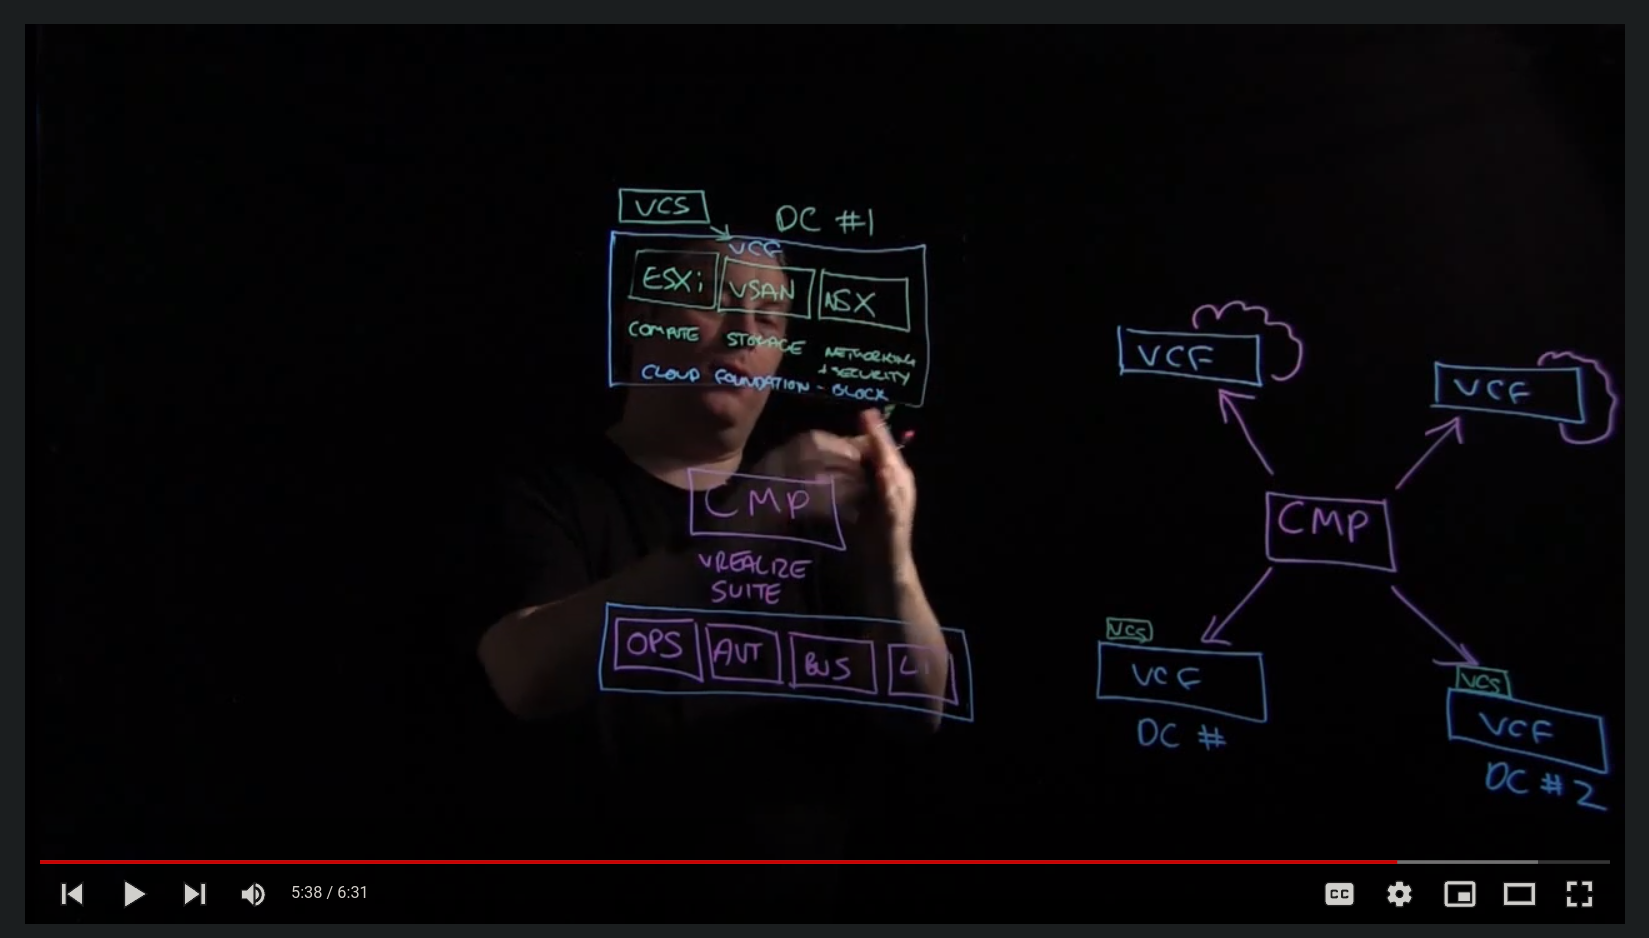 VCS
DC #1
VCF
ESXi VSAN NSX
COMPUTE STORAGE NETWORKING
+ SECURITY
CLOUD FOUNDATION - BLOCK
CMP
VREALIZE
SUITE
OPS AUT BUS LI
VCF
VCF
CMP
VCS
VCF
DC #
VCS
VCF
DC #2
5:38 / 6:31
CC